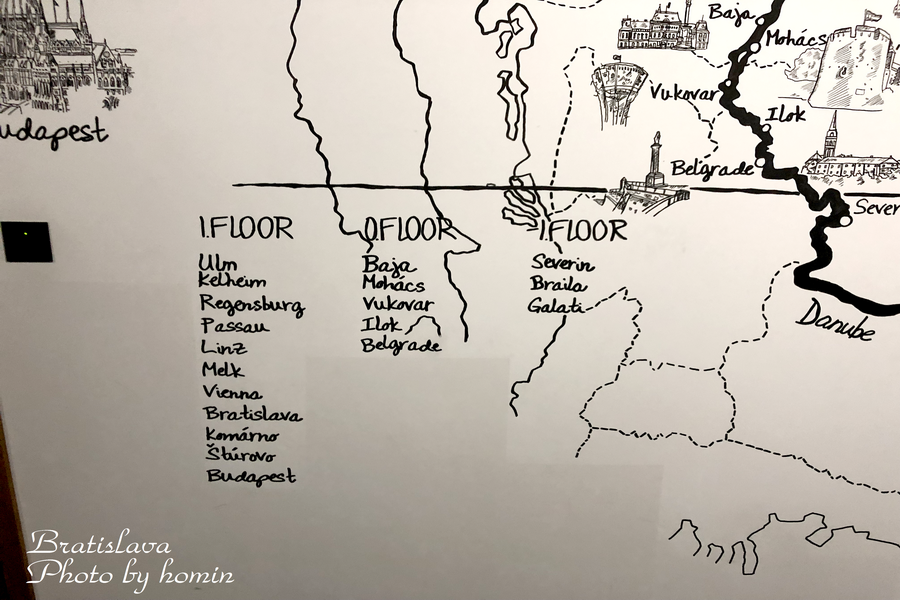 Baja
Mohács
Vukovar
Ilok
Belgrade
Sever
Danube
udapest
1.FLOOR
Ulm
Kelheim
Regensburg
Passau
Linz
Melk
Vienna
Bratislava
Komárno
Štúrovo
Budapest
0.FLOOR
Baja
Mohács
Vukovar
Ilok
Belgrade
-1.FLOOR
Severin
Braila
Galati
Bratislava
Photo by homin